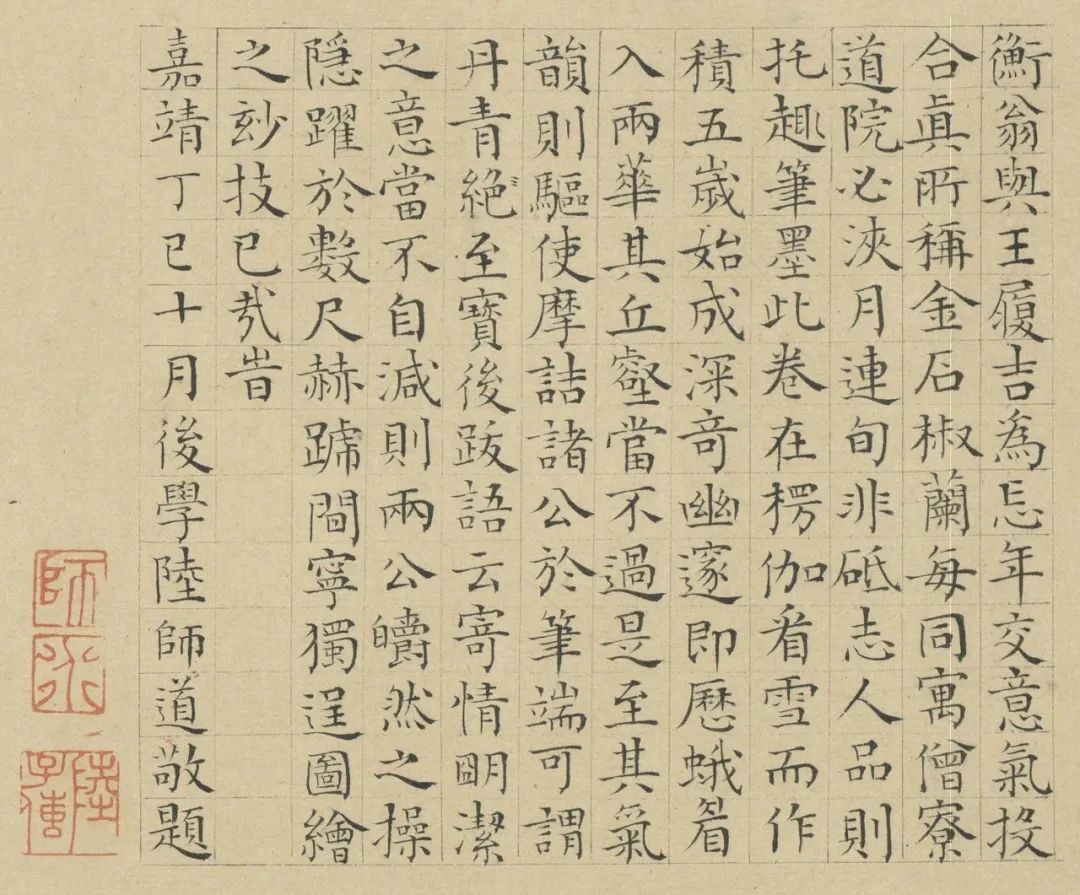 衡翁與王履吉爲忘年交意氣投
合眞所稱金石椒蘭每同寓僧寮
道院必浹月連旬非砥志人品則
托趣筆墨此卷在楞伽看雪而作
積五歲始成深奇幽邃即歷蛾眉
入兩華其丘壑當不過是至其氣
韻則驅使摩詰諸公於筆端可謂
丹青絕至寶後跋語云寄情明潔
之意當不自減則兩公皭然之操
隱躍於數尺赫蹏間寧獨逞圖繪
之玅技已㢤旹
嘉靖丁巳十月後學陸師道敬題
師
陸子傳